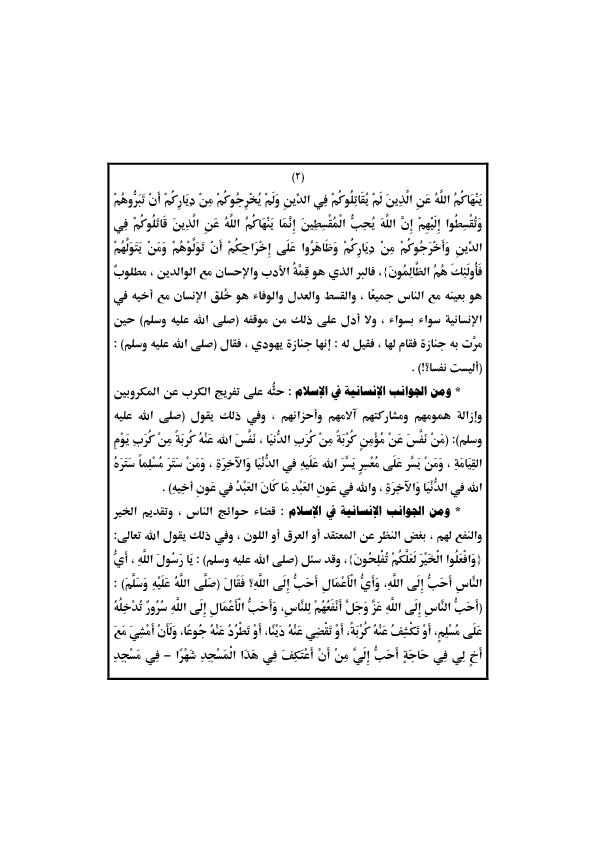 (٢)
يَنْهَاكُمُ اللَّهُ عَنِ الَّذِينَ لَمْ يُقَاتِلُوكُمْ فِي الدِّينِ وَلَمْ يُخْرِجُوكُمْ مِنْ دِيَارِكُمْ أَنْ تَبَرُّوهُمْ
وَتُقْسِطُوا إِلَيْهِمْ إِنَّ اللَّهَ يُحِبُّ الْمُقْسِطِينَ إِنَّمَا يَنْهَاكُمُ اللَّهُ عَنِ الَّذِينَ قَاتَلُوكُمْ فِي
الدِّينِ وَأَخْرَجُوكُمْ مِنْ دِيَارِكُمْ وَظَاهَرُوا عَلَى إِخْرَاجِكُمْ أَنْ تَوَلَّوْهُمْ وَمَنْ يَتَوَلَّهُمْ
فَأُولَئِكَ هُمُ الظَّالِمُونَ}، فالبر الذي هو قِمَّةُ الأدب والإحسان مع الوالدين ، مطلوبٌ
هو بعينه مع الناس جميعًا ، والقسط والعدل والوفاء هو خُلق الإنسان مع أخيه في
الإنسانية سواء بسواء ، ولا أدل على ذلك من موقفه (صلى الله عليه وسلم) حين
مرَّت به جنازة فقام لها ، فقيل له : إنها جنازة يهودي ، فقال (صلى الله عليه وسلم) :
(أليست نفسا؟!) .
* ومن الجوانب الإنسانية في الإسلام : حثُّه على تفريج الكرب عن المكروبين
وإزالة همومهم ومشاركتهم آلامهم وأحزانهم ، وفي ذلك يقول (صلى الله عليه
وسلم): (مَنْ نَفَّسَ عَنْ مُؤْمِنٍ كُرْبَةً مِنْ كُرَبِ الدُّنيَا ، نَفَّسَ الله عَنْهُ كُرْبَةً مِنْ كُرَبِ يَوْمِ
القِيَامَةِ ، وَمَنْ يَسَّرَ عَلَى مُعْسِرٍ يَسَّرَ الله عَلَيهِ في الدُّنْيَا وَالآخِرَةِ ، وَمَنْ سَتَرَ مُسْلِماً سَتَرَهُ
الله في الدُّنْيَا وَالآخِرَةِ ، والله في عَونِ العَبْدِ مَا كَانَ العَبْدُ في عَونِ أخِيهِ) .
* ومن الجوانب الإنسانية في الإسلام : قضاء حوائج الناس ، وتقديم الخير
والنفع لهم ، بغض النظر عن المعتقد أو العرق أو اللون ، وفي ذلك يقول الله تعالى:
{وَافْعَلُوا الْخَيْرَ لَعَلَّكُمْ تُفْلِحُونَ}، وقد سئل (صلى الله عليه وسلم) : يَا رَسُولَ اللَّهِ ، أَيُّ
النَّاسِ أَحَبُّ إِلَى اللَّهِ، وَأَيُّ الْأَعْمَالِ أَحَبُّ إِلَى اللَّهِ؟ فَقَالَ (صَلَّى اللَّهُ عَلَيْهِ وَسَلَّمَ) :
(أَحَبُّ النَّاسِ إِلَى اللَّهِ عَزَّ وَجَلَّ أَنْفَعُهُمْ لِلنَّاسِ، وَأَحَبُّ الْأَعْمَالِ إِلَى اللَّهِ سُرُورٌ تُدْخِلُهُ
عَلَى مُسْلِمٍ، أَوْ تَكْشِفُ عَنْهُ كُرْبَةً، أَوْ تَقْضِي عَنْهُ دَيْنًا، أَوْ تَطْرُدُ عَنْهُ جُوعًا، وَلَأَنْ أَمْشِيَ مَعَ
أَخٍ لِي فِي حَاجَةٍ أَحَبُّ إِلَيَّ مِنْ أَنْ أَعْتَكِفَ فِي هَذَا الْمَسْجِدِ شَهْرًا – فِي مَسْجِدِ